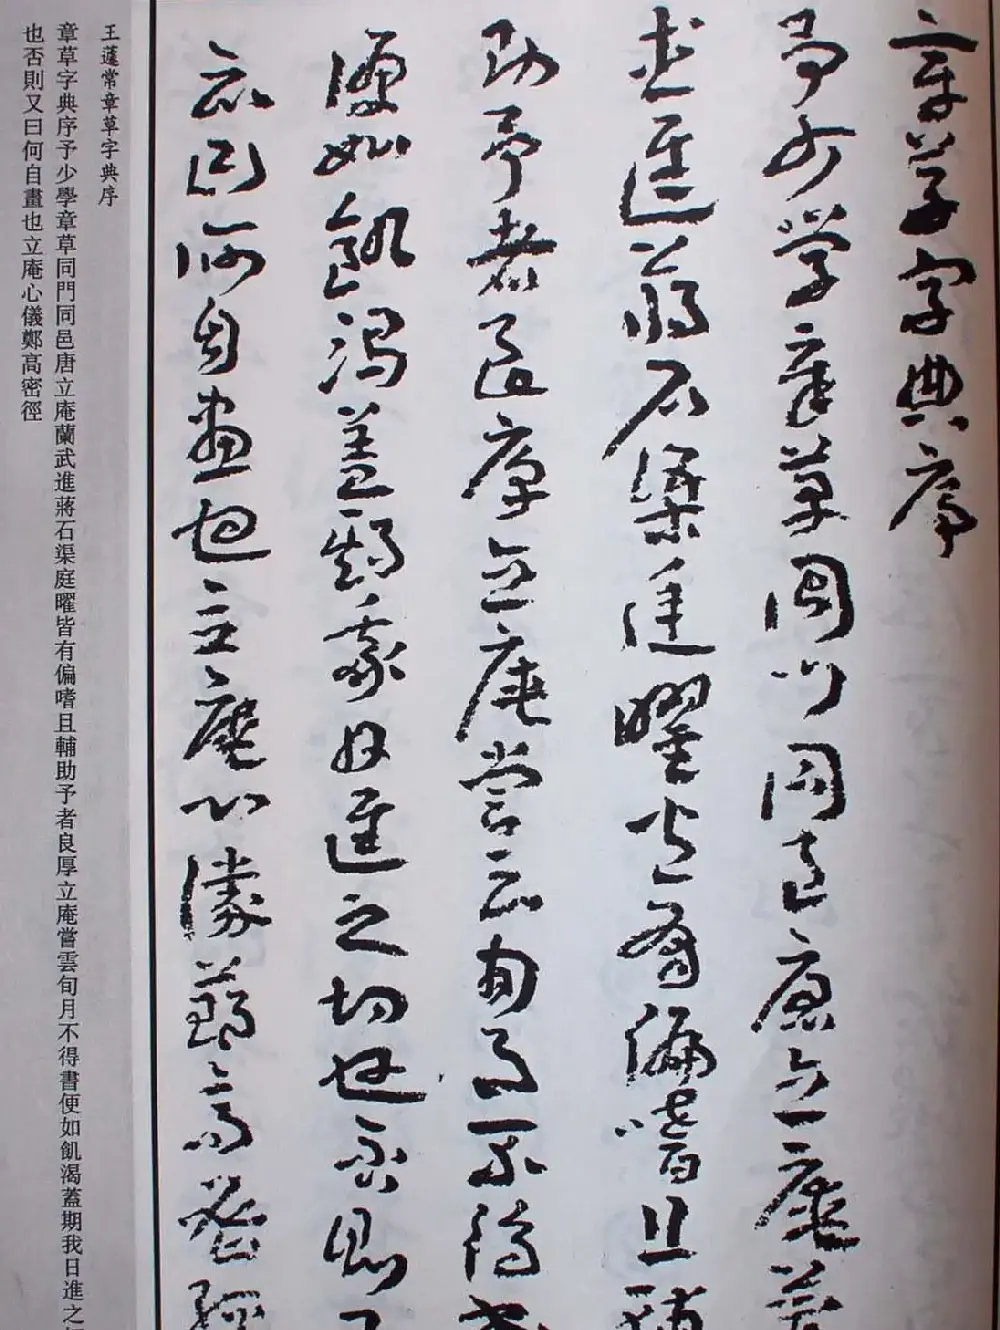 章草字典序
予少學章草同門同邑唐立庵蘭
武進蔣石渠庭曜皆有偏嗜且輔
助予者良厚立庵嘗云旬月不得書
便如飢渴蓋期我日進之切也否則又
曰何自畫也立庵心儀鄭高密經
王蘧常章草字典序
章草字典序予少學章草同門同邑唐立庵蘭武進蔣石渠庭曜皆有偏嗜且輔助予者良厚立庵嘗雲旬月不得書便如飢渴蓋期我日進之切
也否則又曰何自畫也立庵心儀鄭高密徑